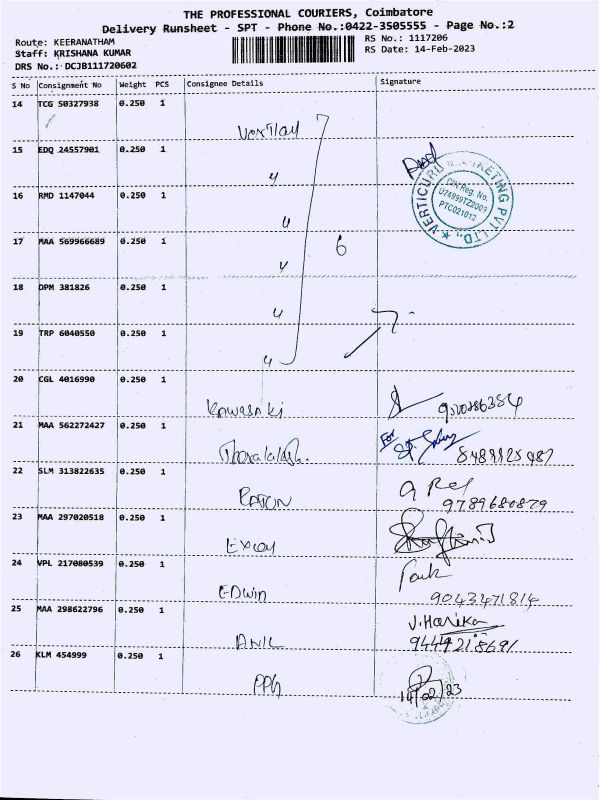 THE PROFESSIONAL COURIERS, Coimbatore
Delivery Runsheet - SPT - Phone No.:0422-3505555 - Page No.:2
Route: KEERANATHAM
RS No.: 1117206
Staff: KRISHANA KUMAR
RS Date: 14-Feb-2023
DRS No.: DCJB111720602
S No Consignment No Weight PCS Consignee Details Signature
14 TCG 50327938 0.250 1
15 EDQ 24557901 0.250 1
VERTICURL MARKETING PVT LTD.,
CIN Reg. No.
U74999TZ2009
PTC021013
16 RMD 1147044 0.250 1
17 MAA 569966689 0.250 1
6
18 DPM 381826 0.250 1
19 TRP 6040550 0.250 1
20 CGL 4016990 0.250 1
Kawasaki
21 MAA 562272427 0.250 1
For
22 SLM 313822635 0.250 1
9789680879
23 MAA 297020518 0.250 1
24 VPL 217080539 0.250 1
EDwin
9043471814
25 MAA 298622796 0.250 1
J.Harika
ANIL
26 KLM 454999 0.250 1
14/02/23